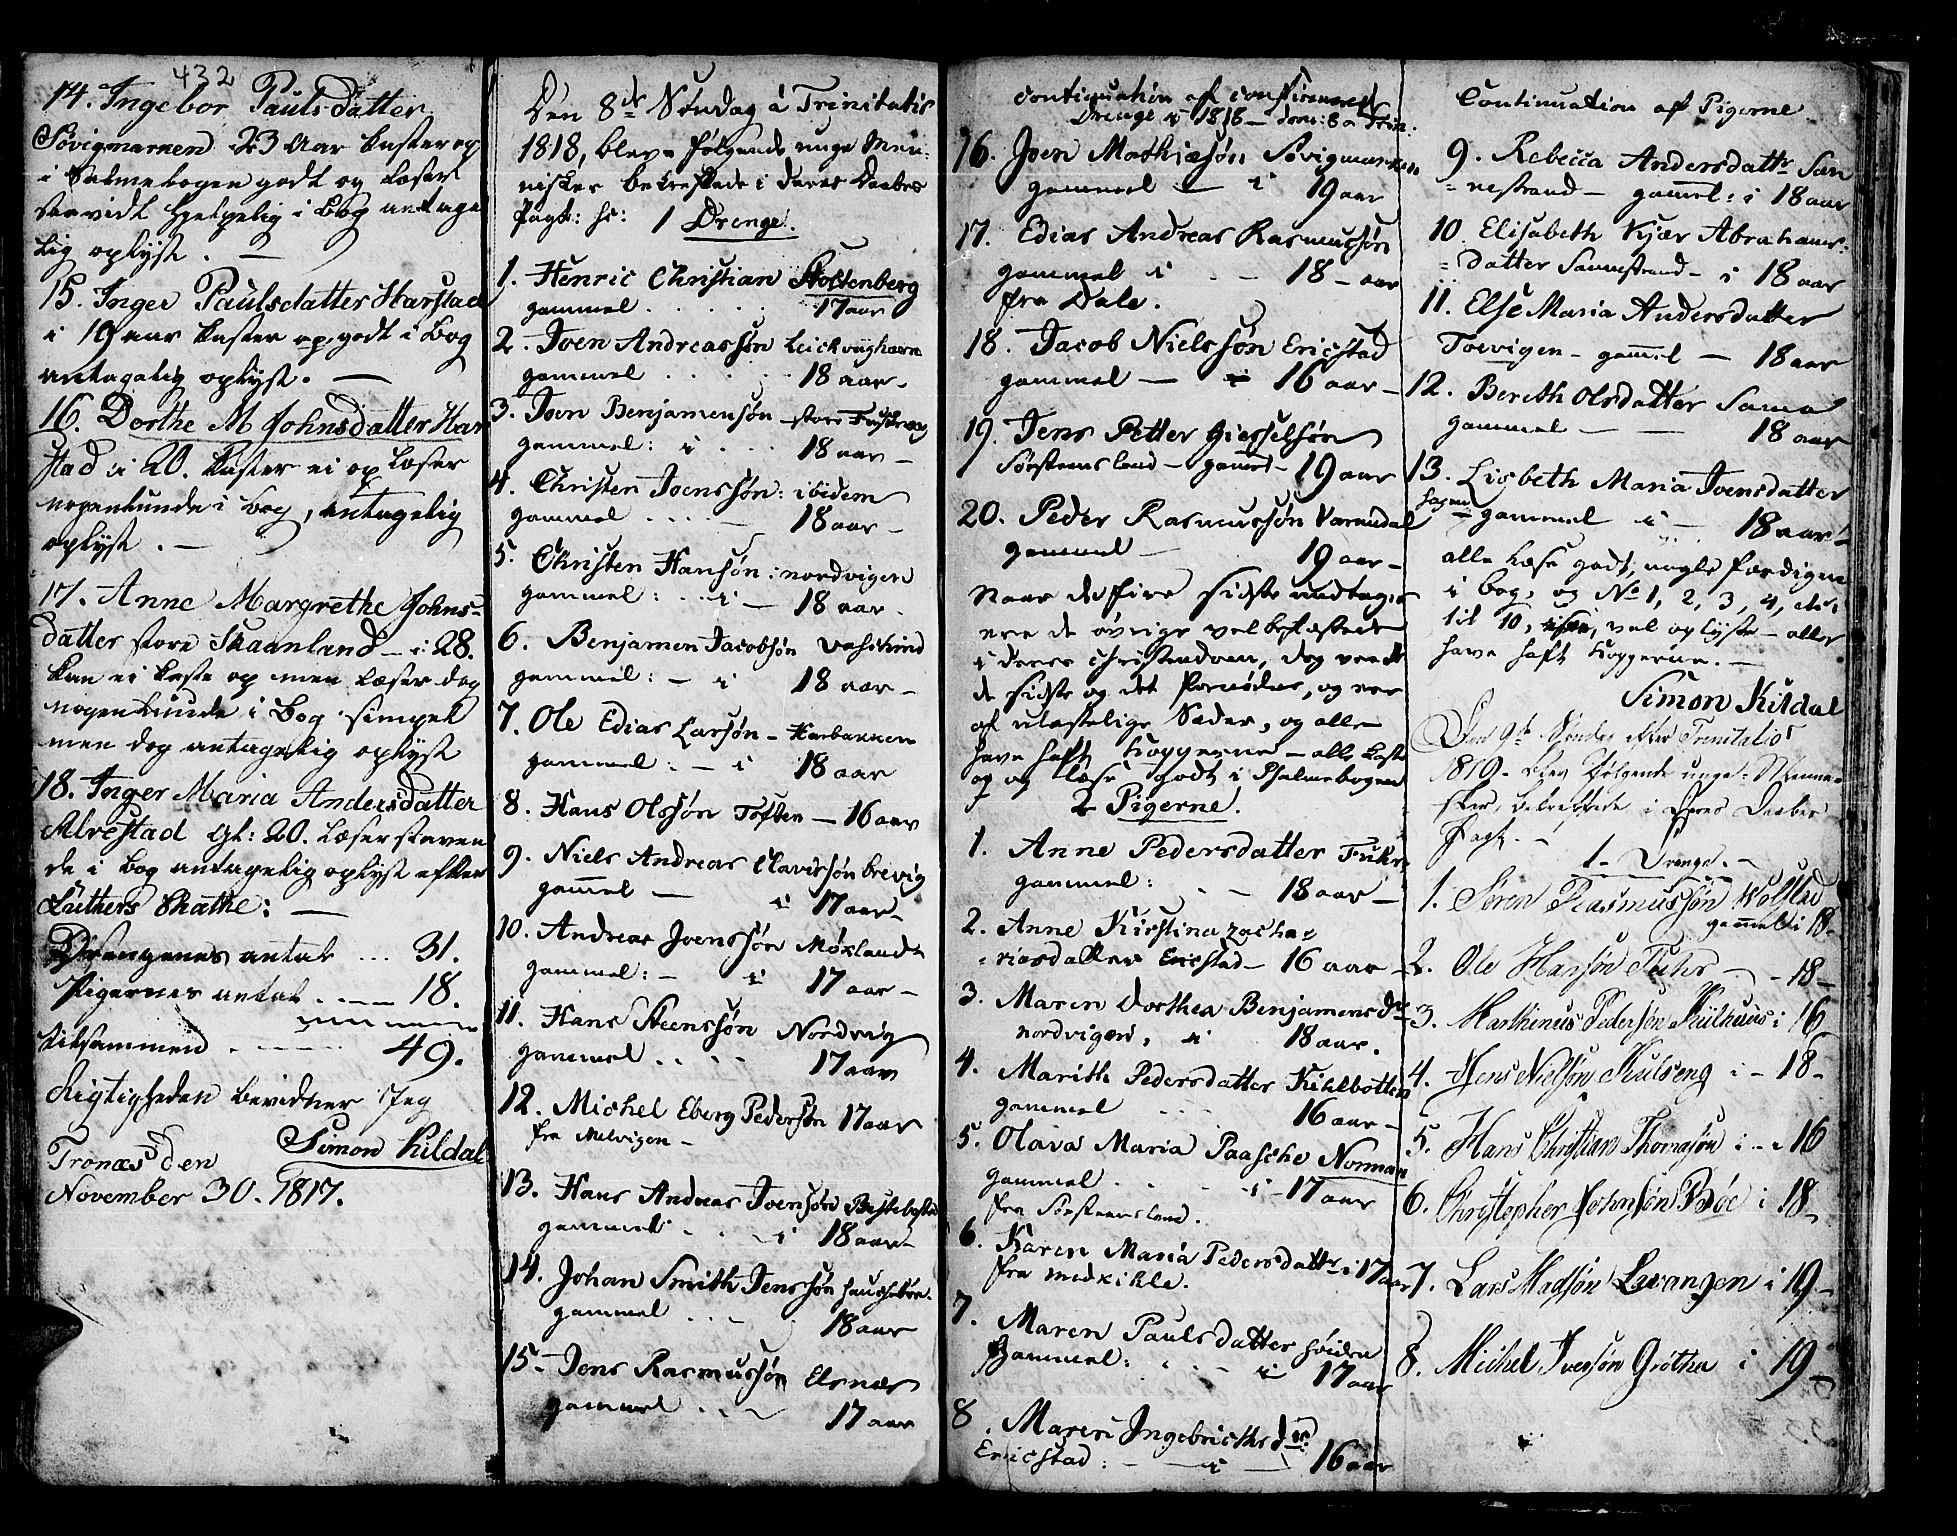 432
14. Ingebor Pauls datter
Søvigmarken 23 Aar kaster op
i Salmebogen godt og læser
saavidt hjelpelig i Bog antage
lig oplyst. —
15. Inger Paulsdatter Harstad
i 19 aar kaster op godt i Bog
antagelig oplyst. —
16. Dorthe M Johnsdatter Har
stad i 20. kaster ei op læser
nogenlunde i bog, antagelig
oplyst. —
17. Anne Margrethe Johns-
datter store Skaanland — i 28.
kan ei kaste op men læser dog
nogenlunde i Bog simpel
men dog antagelig oplyst
18. Inger Maria Andersdatter
Alvestad gl: 20. læser staven
de i bog antagelig oplyst efter
Luthers Chathe: —
Drengenes antal ... 31.
Pigernes antal . — 18.
tilsammen . — 49.
Rigtigheden bevidner Jeg
Tronæs den Simon Kildal
November 30. 1817.
Den 8de Søndag a Trinitatis
1818, bleve følgende unge Men-
nisker bekræftede i deres Daabes
Pagt: 1 Drenge.
1. Henric Christian Stoltenberg
gammel . . . . 17 aar
2. Joen Andreassøn
gammel . . . 18 aar —
3. Joen Benjamensøn store
gammel: i . . . 18 aar —
4. Christen Joenssøn: ibidem
gammel . . . — 18 aar —
5. Christen Hansøn: nordvigen
gammel: . . i — 18 aar.
6. Benjamen Jacobsøn
gammel: — i 18 aar —
7. Ole Edias Larsøn —
gammel: — i 18 aar
8. Hans Olssøn Toften — 16 aar
9. Niels Andreas Clavissøn brevig
gammel — i 17 aar —
10. Andreas Joenssøn Møkland
gammel: — i 17 aar —
11. Hans Steenssøn Nordvig
gammel . . . . 17 aar
12. Michel Eberg Pederssøn 17 aar
fra Melvigen —
13. Hans Andreas Joensøn
gammel . . — i 18 aar —
14. Johan Smith Jenssøn
gammel . . — 18 aar
15 — Jens Rasmussøn Elsnes
gammel . . — 17 aar
Continuation af confirmerede
Drenge i 1818 — Dom: 8 a Trin.
16. Joen Mathiasøn Søvigmarken
gammel — i 19 aar
17. Edias Andreas Rasmussøn
gammel i . — 18 — aar
fra Dale.
18. Jacob Nielssøn Ericstad
gammel — i 16 aar —
19. Jens Petter Giesselsøn
Sørsteensland — gammel — 19 aar
20. Peder Rasmussøn
gammel — 19 aar —
Naar de fire sidste undtages
ere de øvrige vel befæstede
i deres Christendom, dog veed
de sidste og det fornødne, og ere
af ulastelige Sæder, og alle
have haft kopperne — alle kaste
op og læse godt i Psalmebogen
2 Pigerne.
1. Anne Pedersdatter
gammel: . — 18 aar —
2. Anne Kirstina zacha-
riasdatter Ericstad — 16 aar —
3. Maren Dorthea Benjamensdr
nordvigen, i 18 aar.
4. Marith Pedersdatter Kihlbotten
gammel . . . 16 aar —
5. Olava Maria Paasche Norman
gammel . . — i — 17 aar
fra Sørsteensland.
6. Karen Maria Pedersdattr i 17 aar
fra medkihle.
7. Maren Pauls datter
gammel: . . . — i 17 aar
8. Maren Ingebricths dtr
Ericstad: — i — 16 aar
Continuation aff Pigerne
9. Rebecca Andersdattr San
nestrand — gammel: i 18 aar
10. Elisabeth Kjær Abrahams-
datter Sannestrand — i 18 aar
11. Else Maria Andersdatter
gammel — 18 aar
12. Bereth Olsdatter Sama
gammel — — 18 aar
13. Lisbeth Maria Joensdatter
gammel i — 18 aar
alle læse godt, nogle færdigen
i bog, og No 1, 2, 3, 4,
til 10, vel oplyste — alle
have haft kopperne. —
Simon Kildal
Den 9de Søndag efter Trinitatis
1819. blev følgende unge Menne-
sker, bekræftede i deres Daabes
Pagt. —
1 — Drenge. —
1. Søren Rasmussøn Wolstad
gammel i 18 —
2. Ole Hansøn — — 18 —
3. Marthinus Pedersøn i 16
4. Jens Nielsøn i — 18 —
5. Hans Christian Thomasøn i — 16
6. Christopher Johnsøn Bøe i 18 —
7. Lars Madsøn Levangen i 19 —
8. Michel Iversøn Grøthe i 19 —